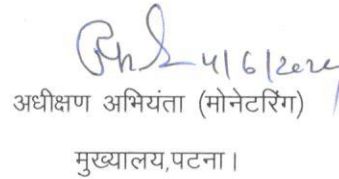 4/6/2024
अधीक्षण अभियंता (मोनेटरिंग)
मुख्यालय,पटना।